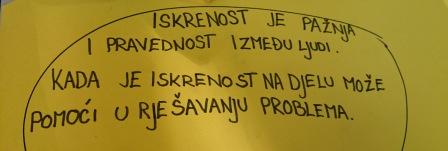 ISKRENOST JE PAŽNJA
I PRAVEDNOST IZMEĐU LJUDI.
KADA JE ISKRENOST NA DJELU MOŽE
POMOĆI U RJEŠAVANJU PROBLEMA.